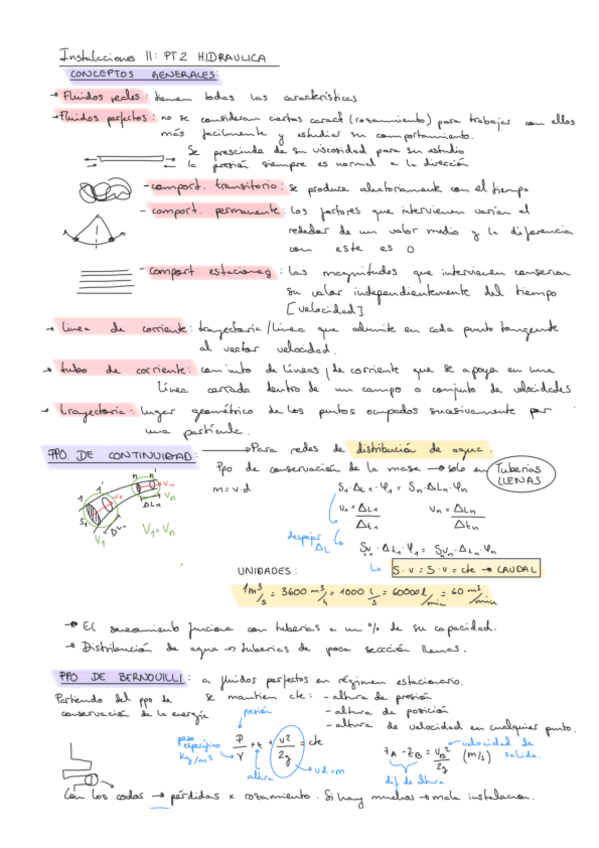 Instalaciones II: PT2 HIDRAULICA
CONCEPTOS GENERALES:
→ Fluidos reales: tienen todas las características
→ Fluidos perfectos: no se consideran ciertas caract (rozamiento) para trabajar con ellos
más facilmente y estudiar su comportamiento.
Se prescinde de su viscosidad para su estudio
la presión siempre es normal a la dirección
- comport. transitorio: se produce aleatoriamente con el tiempo
- comport. permanente: los factores que intervienen varían al
rededor de un valor medio y la diferencia
con este es 0
- compart estacionag: las magnitudes que intervienen conservan
su valor independientemente del tiempo
[velocidad]
→ linea de corriente: trayectoria/linea que admite en cada punto tangente
al vector velocidad.
→ tubo de corriente: conjunto de líneas de corriente que se apoya en una
línea cerrada dentro de un campo o conjunto de velocidades
→ trayectoria: lugar geométrico de los puntos ocupados sucesivamente por
una partícula.
PPO DE CONTINUIDAD: → Para redes de distribución de agua.
Ppo de conservación de la masa → solo en Tuberías LLENAS
m = v·d
S₁·ΔL₁·φ₁ = Sn·ΔLn·φn
v₁ = ΔL₁/Δt₁ vn = ΔLn/Δtn
V₁ = Vn
despejar ΔL
S·v = S·v = cte → CAUDAL
UNIDADES:
1 m³/s = 3600 m³/h = 1000 l/s = 60000 l/min = 60 m³/min
→ El saneamiento funciona con tuberías a un % de su capacidad.
→ Distribución de agua → tuberías de poca sección llenas.
PPO DE BERNOUILLI: a fluidos perfectos en régimen estacionario.
Partiendo del ppo de conservación de la energía
se mantien cte: - altura de presión
- altura de posición
- altura de velocidad en cualquier punto.
presión
peso específico Kg/m³
P/γ + z + v²/2g = cte
altura
→ ud = m
zA - zB = vB²/2g (m/s)
velocidad de salida.
dif de altura
Con los codos → pérdidas x rozamiento. Si hay muchos → mala instalacion.